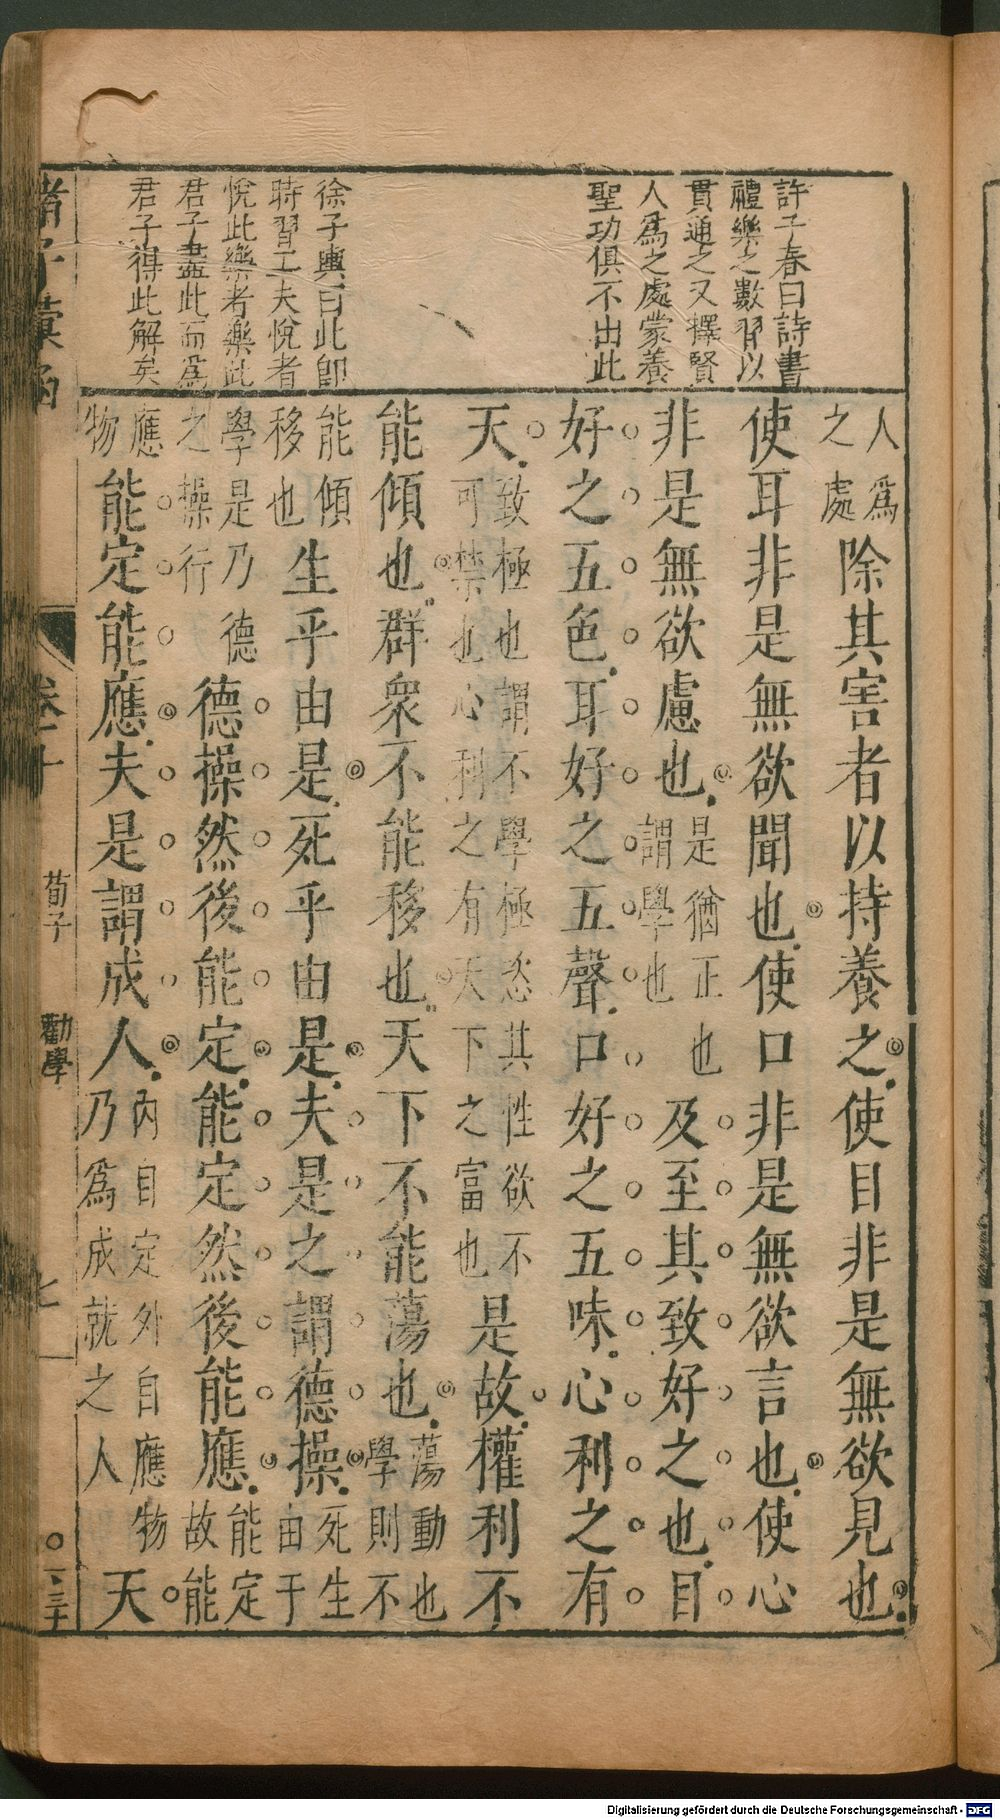 許子春曰詩書
禮樂之數習以
貫通之又擇賢
人爲之處蒙養
聖功俱不出此
徐子與曰此即
時習工夫悅者
悅此樂者樂此
君子盡此而爲
君子得此解矣
人爲之處除其害者以持養之使目非是無欲見也
使耳非是無欲聞也使口非是無欲言也使心
非是無欲慮也是猶正也謂學也及至其致好之也目
好之五色耳好之五聲口好之五味心利之有
天致極也謂不學極恣其性欲不可禁也心利之有天下之富也是故權利不
能傾也群衆不能移也天下不能蕩也蕩動也學則不
能傾移也生乎由是死乎由是夫是之謂德操死生由于
學是乃德之操行德操然後能定能定然後能應能定故能
應物能定能應夫是謂成人內自定外自應物乃爲成就之人天
諸子彙函 卷十 荀子 勸學 七
Digitalisierung gefördert durch die Deutsche Forschungsgemeinschaft - DFG